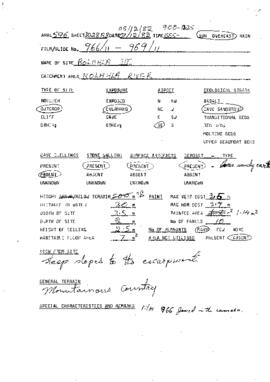 05/12/82 900-925
ARAL 596 SHEET 3028 DATE 5/12/82 TIME SUN OVERCAST RAIN
FILM/SLIDE No. 966/11 - 969/11
NAME OF SITE
CATCHMENT AREA RIVER
TYPE OF SITE EXPOSURE ASPECT GEOLOGICAL STRATA
BOULDER EXPOSED N SW BASALT
OUTCROP OVERHANG NE S CAVE SANDSTONE
CLIFF CAVE E TRANSITIONAL BEDS
OTHERS OTHERS SE RED BEDS
MOLTENO BEDS
UPPER BEAUFORT BEDS
CAVE DWELLINGS STONE WALLING SURFACE ARTEFACTS DEPOSIT - TYPE
PRESENT PRESENT PRESENT PRESENT - sandy earth
ABSENT ABSENT ABSENT ABSENT
UNKNOWN UNKNOWN UNKNOWN
HEIGHT BELOW TERRAIN 500 m PAINT MAX VERT DIST 3.5 m
DISTANCE TO WATER 30 m MAX HOR DIST 3.9 m
WIDTH OF SITE 3.5 m PAINTED AREA 1.14 m2
DEPTH OF SITE 2 m No OF PANELS 10
HEIGHT OF CEILING 2.5 m No OF REMNANTS MANY FEW NONE
HABITABLE FLOOR AREA 7 m2 PRESENT ABSENT
VIEW FROM SITE
Steep slopes to the escarpment.
GENERAL TERRAIN
Mountainous Country
SPECIAL CHARACTERISTICS AND REMARKS Film 966 jammed in the camera.